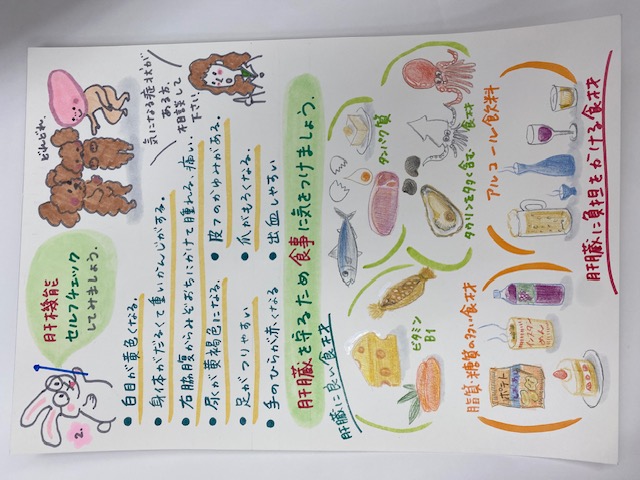 肝機能
セルフチェック
してみましょう。
2.
どれどれ。
気になる症状が
ある方、
相談して
下さい。
• 白目が黄色くなる。
• 身体がだるくて重いかんじがする。
• 右脇腹からみぞおちにかけて腫れる、痛い。
• 尿が黄褐色になる。
• 皮フのかゆみがある。
• 足がつりやすい
• 爪がもろくなる。
• 手のひらが赤くなる
• 出血しやすい
肝臓を守るため食事に気をつけましょう。
肝臓に良い食材
タンパク質
タウリンを多く含む
食材
ビタミン
B1
肝臓に負担をかける食材
アルコール飲料
脂質・糖質の多い食材